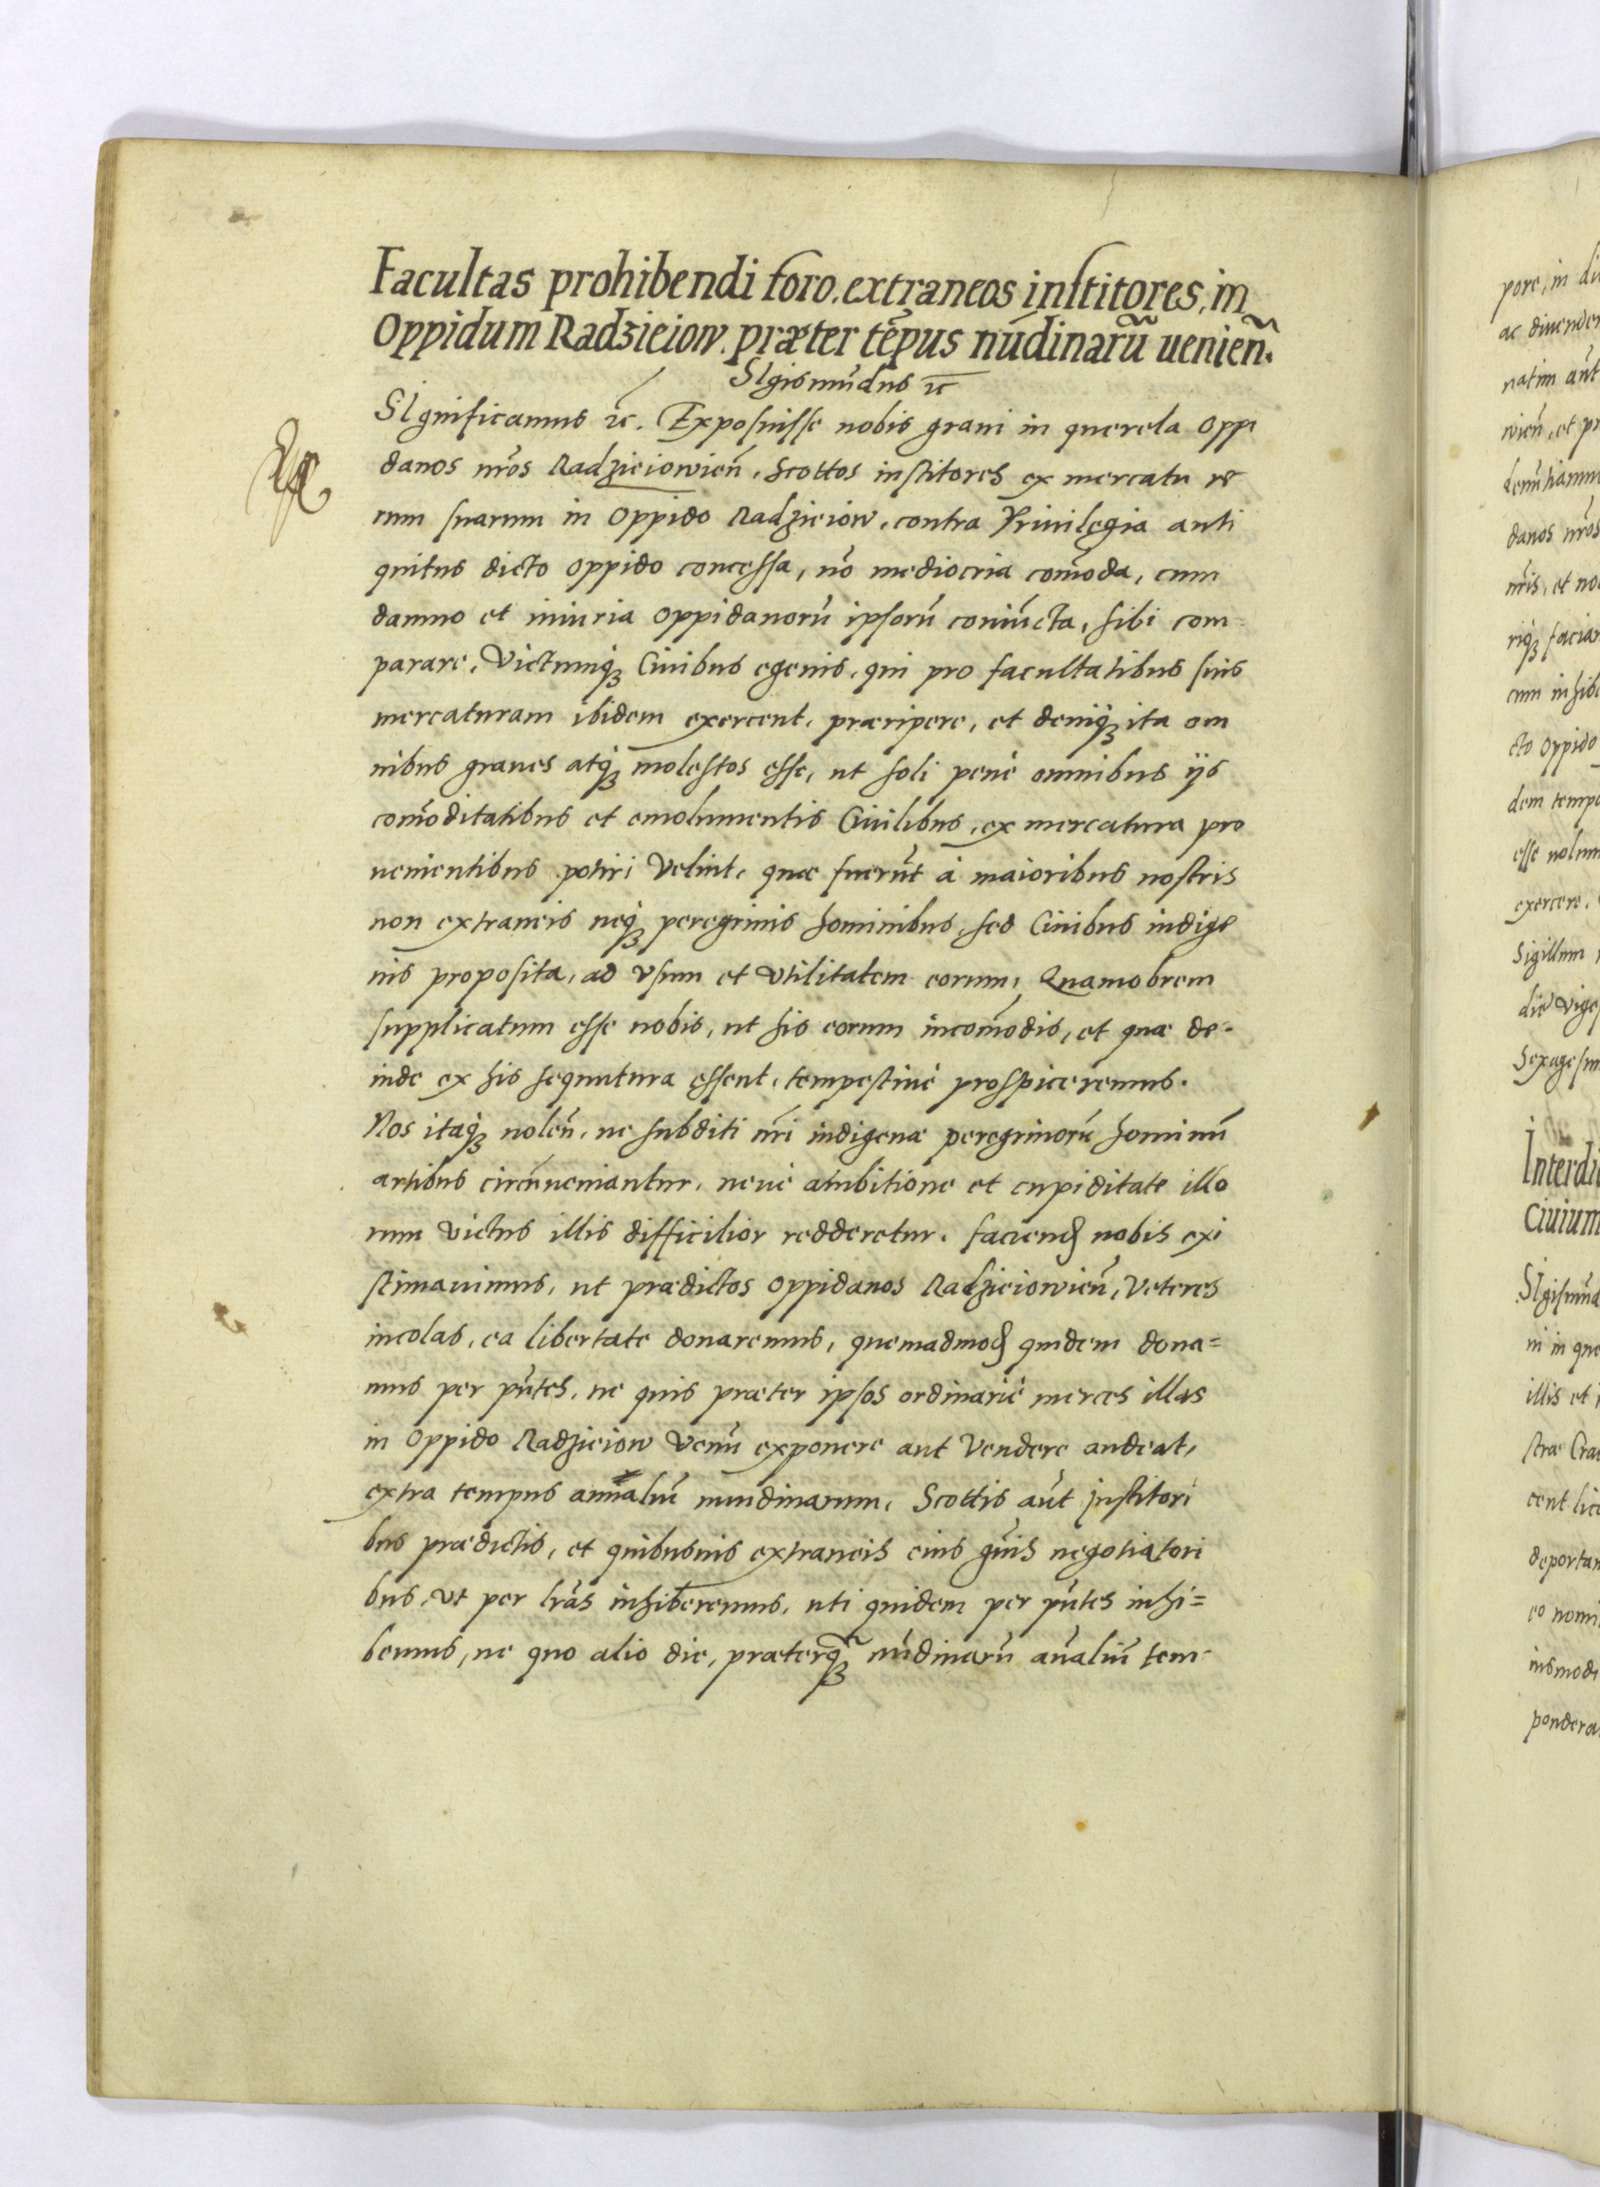 Facultas prohibendi foro, extraneos institores, in
Oppidum Radzieiow, præter tẽpus nũdinarũ uenieñ.
SIgismũdus ꝛc̃
SIgnificamus ꝛc̃. Exposuisse nobis graui in querela oppi
danos nr̃os Radzieiowieñ, Scottos institores ex mercatu re
rum suarum in oppido Radzieiow, contra Priuilegia anti
quitus dicto oppido concessa, nõ mediocria com̃oda, cum
damno et iniuria oppidanorũ ipsorũ coniũcta, sibi com
parare, Victumqꝫ Ciuibus egenis, qui pro facultatibus suis
mercaturam ibidem exercent, præripere, et deniqꝫ ita om
nibus graues atqꝫ molestos esse, ut soli penè omnibus ijs
com̃oditatibus et emolumentis Ciuilibus, ex mercatura pro
uenientibus potiri Velint, quæ fuerũt à maioribus nostris
non extraneis neqꝫ peregrinis hominibus, sed Ciuibus indige
nis proposita, ad vsum et vtilitatem eorum, Quamobrem
supplicatum esse nobis, ut his eorum incom̃odis, et quæ de-
inde ex his sequutura essent, tempestiuè prospiceremus.
Nos itaqꝫ noleñ, ne subditi nr̃i indigenæ peregrinorũ hominũ
artibus circũueniantur, neuè ambitione et cupiditate illo
rum victus illis difficilior redderetur, faciendꝫ nobis exi
stimauimus, ut prædictos oppidanos Radzieiowieñ, Veteres
incolas, ea libertate donaremus, quemadmodꝫ quidem dona=
mus per pñtes, ne quis præter ipsos ordinariè merces illas
in oppido Radzieiow Venũ exponere aut Vendere audeat,
extra tempus annaliũ nundinarum, Scottis aũt institori
bus prædictis, et quibusuis extraneis eius gñis negotiatori
bus, vt per lr̃as inhiberemus, uti quidem per pñtes inhi=
bemus, ne quo alio die, præterqꝫ̃ nũdinarũ añaliũ tem-
pore, in di
ac diuende
natim aũt
wieñ, et pr
denũtiamu
danos nr̃os
nr̃is, et no
riqꝫ facia
cum inhib
cto oppido
dem temp
esse uolum
exercere,
Sigillum
die vige
sexagesim
Interdi
Ciuium
SIgismũd
ni in que
illis et
stræ Cra
cent lic
deportan
eo nomi
iusmodi
pondera